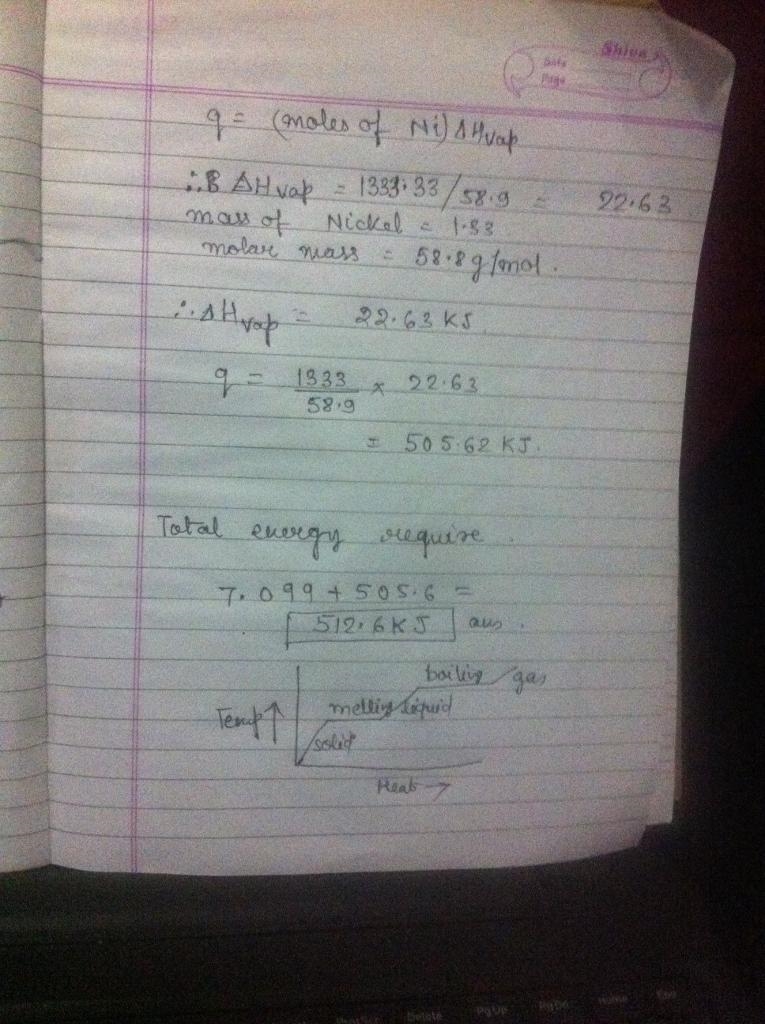 Shiva
Date
Page
q = (moles of Ni) ΔHvap
∴ B ΔHvap = 1333.33/58.9 = 22.63
mass of Nickel = 1.33
molar mass = 58.8 g/mol.
∴ ΔHvap = 22.63 KJ
q = 1333/58.9 x 22.63
= 505.62 KJ.
Total energy require.
7.099 + 505.6 =
512.6 KJ ans.
boiling gas
Temp ↑ melting liquid
solid
Heat →
Delete PgUp PgDn Home End